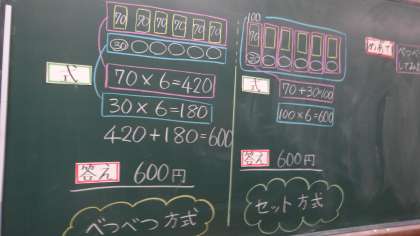 70 70 70 70 70 70
30
式
70×6=420
30×6=180
420+180=600
答え 600円
べつべつ方式
100
70
式
70+30=100
100×6=600
答え 600円
セット方式
めあて